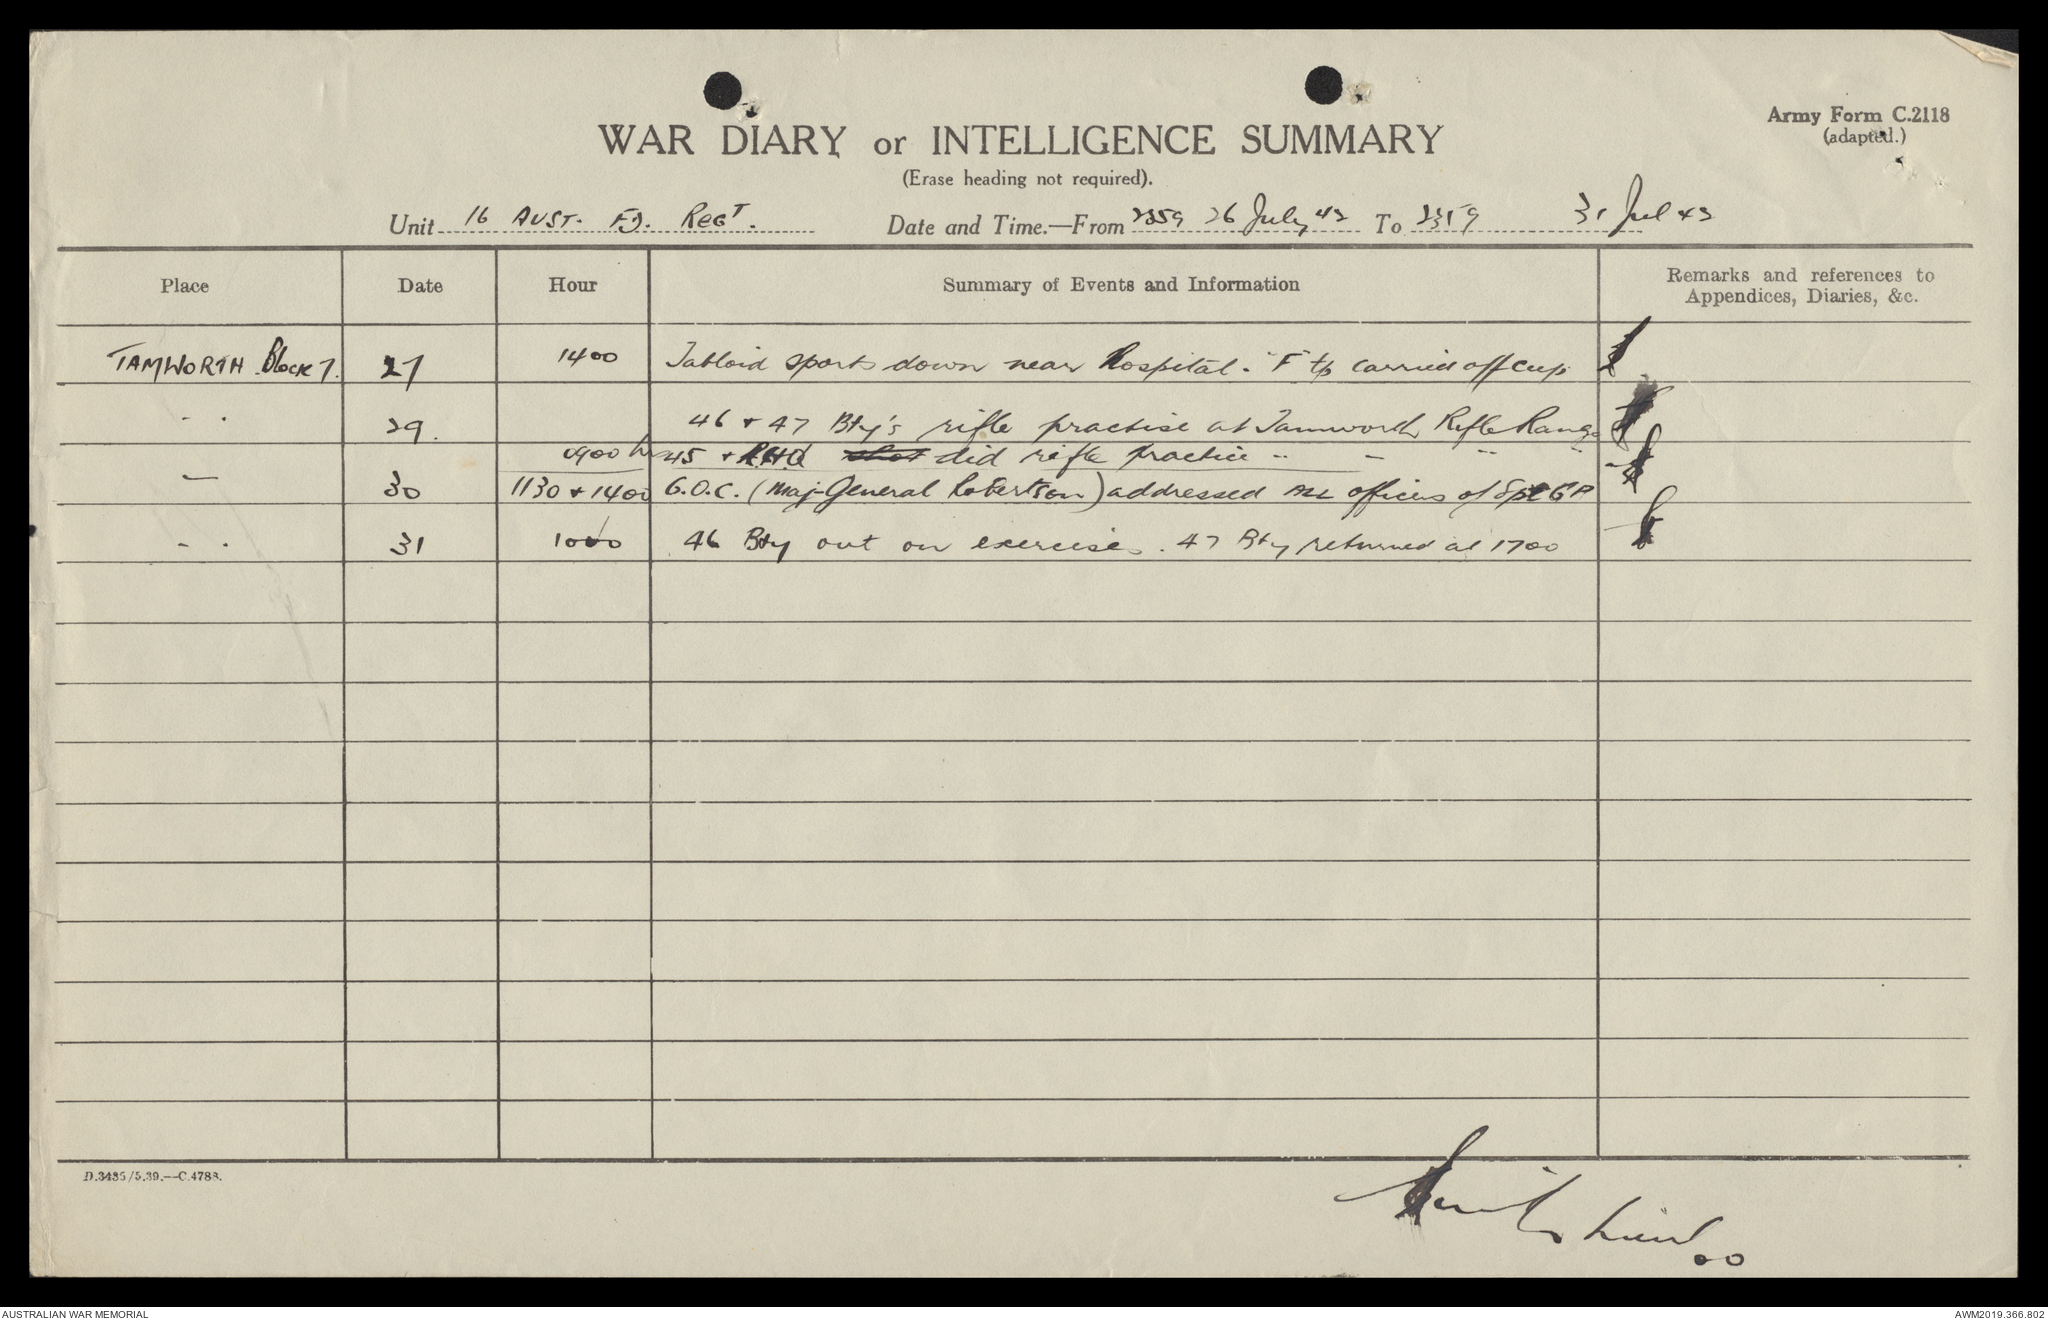 Army Form C.2118
(adapted.)
WAR DIARY or INTELLIGENCE SUMMARY
(Erase heading not required).
Unit 16 AUST. FD. REGT. Date and Time.—From 2359 26 July 43 To 2359 31 Jul 43
Place Date Hour Summary of Events and Information Remarks and references to Appendices, Diaries, &c.
TAMWORTH Block 7. 27 1400 Tabloid sports down near hospital. "F" tp carried off cup.
" " 29. 46 + 47 Bty's rifle practise at Tamworth Rifle Range
0900 hr 45 + RHQ shot did rifle practice " " " "
— 30 1130 + 1400 G.O.C. (Maj-General Robertson) addressed ALL officers of Spt GP
" " 31 1000 46 Bty out on exercises. 47 Bty returned at 1700
D.3435/5.39.—C.4788.
Lieut
AUSTRALIAN WAR MEMORIAL
AWM2019.366.802